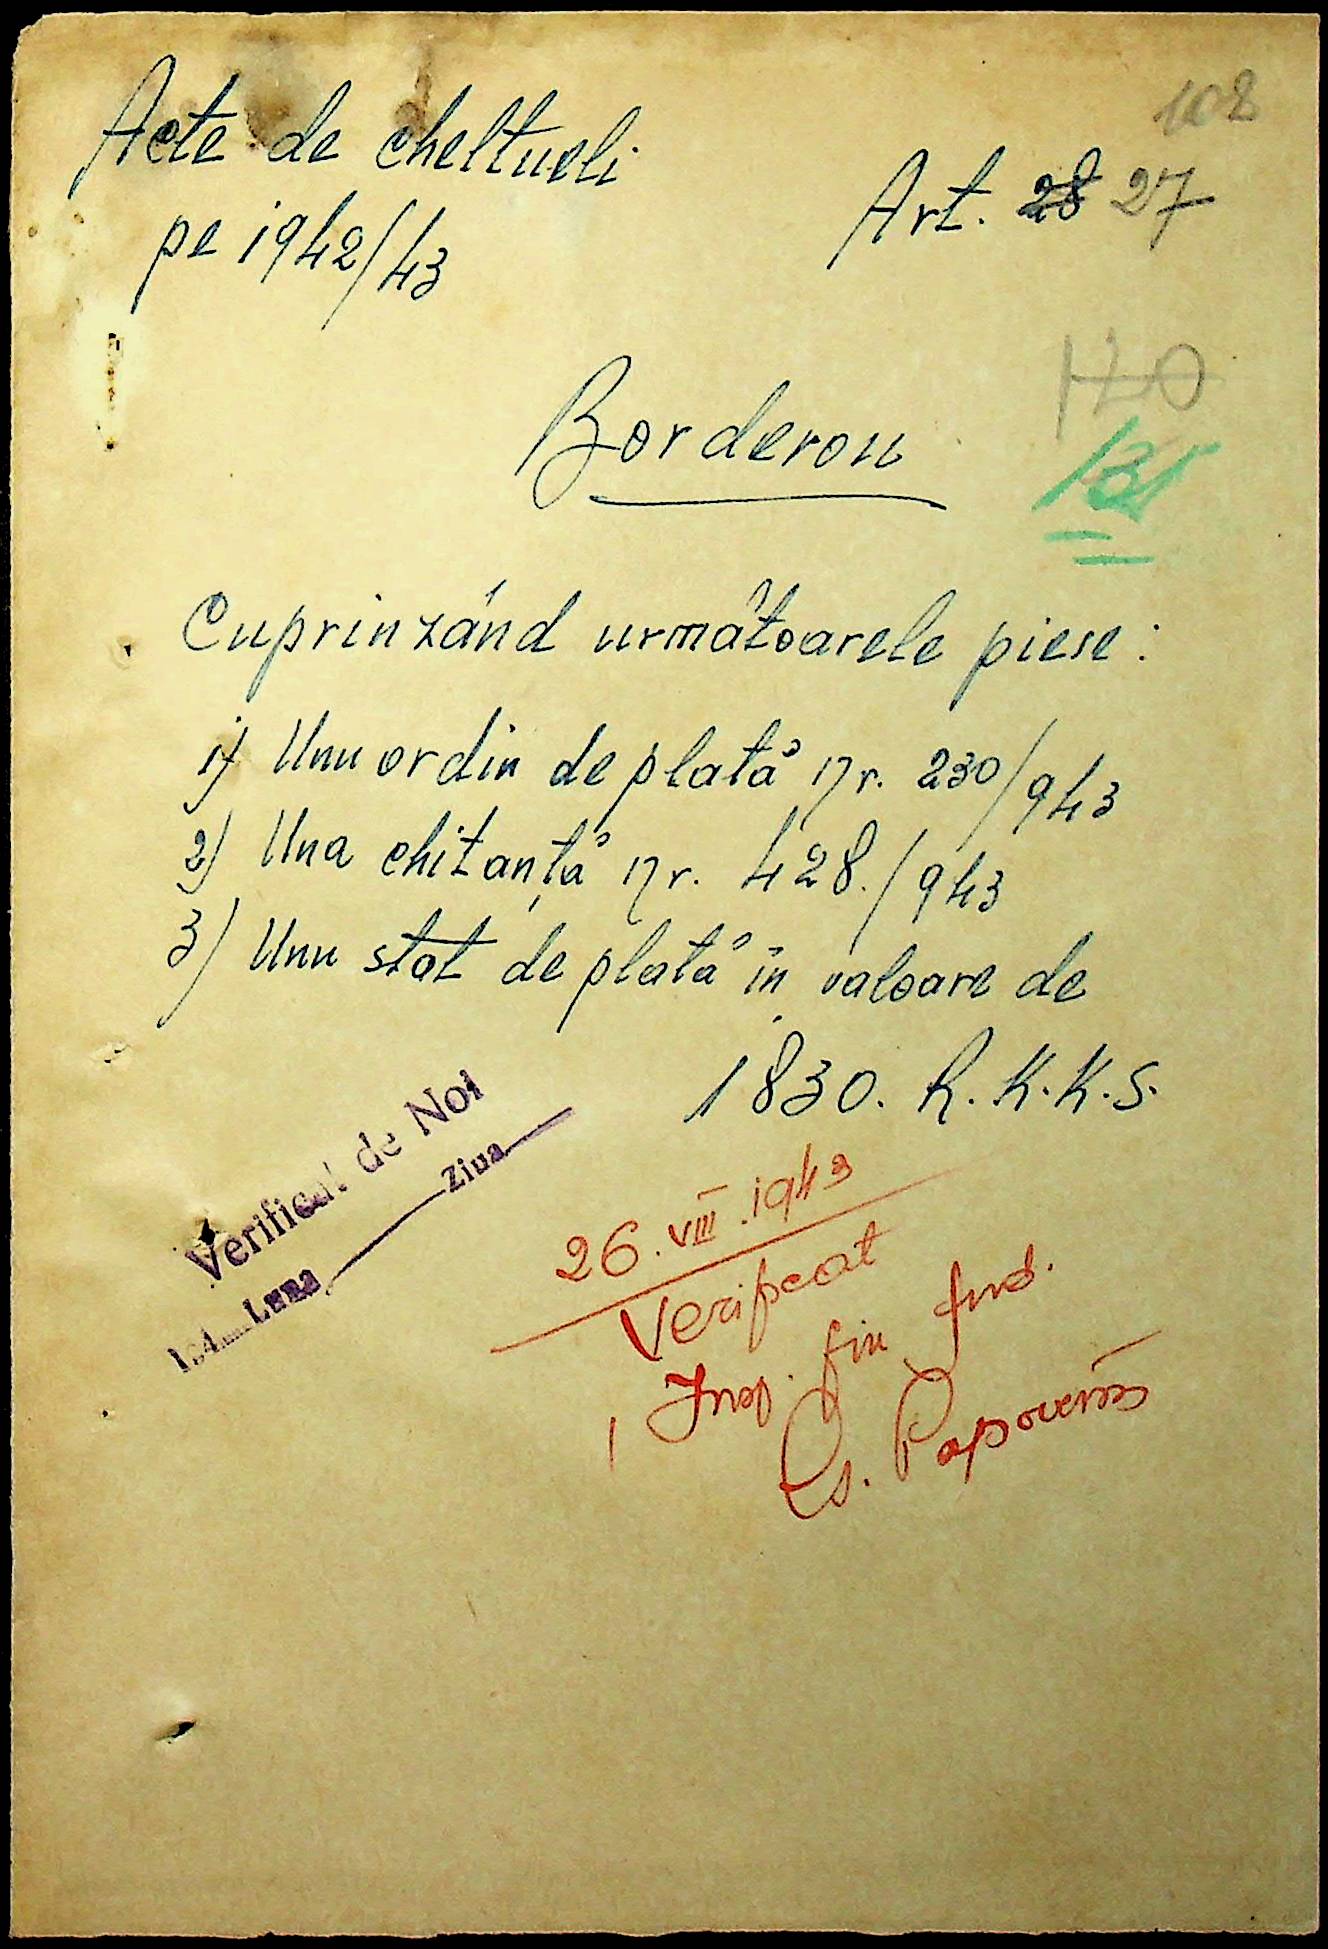 108
Acte de cheltueli
pe 1942/43
Art. 28 27
120
131
Borderou
Cuprinzând următoarele piese:
1) Unu ordin de plată nr. 230/943
2) Una chitanță nr. 428./943
3) Unu stat de plată în valoare de
1830. R.K.K.S.
Verificat de Noi
194 Luna Ziua
26.VIII.1943
Verificat
Insp. fin jud.